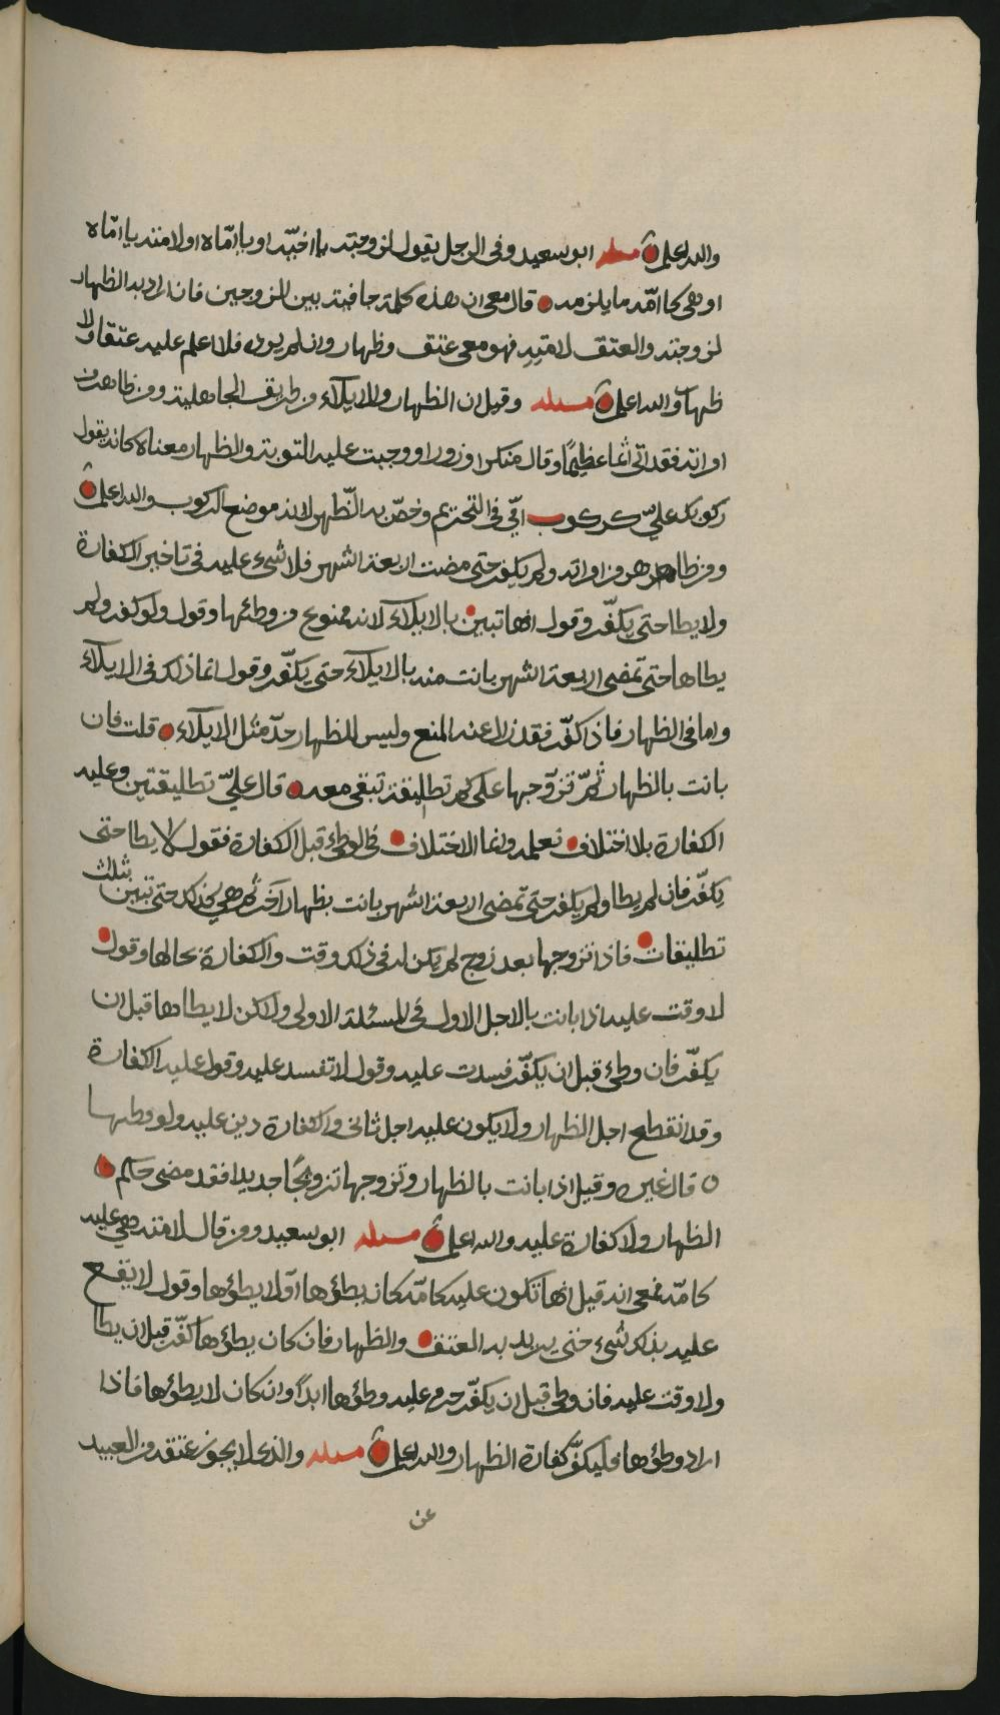 والله اعلم مسئله ابو سعيد وفي الرجل يقول لزوجته يا اخيّه او يا امّاه او لامته يا امّاه
او هي كا امّه ما يلزمه قال معي ان هذه كلمة جافية بين الزوجين فان اراد به الظهار
لزوجته والعتق لامته فهو معي عتق وظهار وان لم يرد فلا اعلم عليه عتقا ولا
ظهارا والله اعلم مسئله وقيل ان الظهار والايلاء من طرايق الجاهلية ومن ظاهر من
امراته فقد اتى اثما عظيما وقال منكرا وزورا ووجبت عليه التوبة والظهار معناه كانه يقول
ركوبك عليّ كركوب امّي في التحريم وخصّ به الظّهر لانه موضع الركوب والله اعلم
ومن ظاهر من امراته ولم يكفر حتى مضت اربعة اشهر فلا شيء عليه في تاخير الكفارة
ولا يطا حتى يكفّر وقول انها تبين بالايلاء لانه ممنوع من وطئها وقول ولو كفر ولم
يطاها حتى تمضى اربعة اشهر بانت منه بالايلاء حتى يكفّر وقول انما ذلك في الايلاء
واما في الظهار فاذا كفّر فقد زال عنه المنع وليس للظهار حدّ مثل الايلاء قلت فان
بانت بالظهار ثمّ تزوّجها على كم تطليقة تبقى معه قال عليّ تطليقتين وعليه
الكفارة بلا اختلاف نعلمه وانما الاختلاف في الوطئ قبل الكفارة فقول لا يطا حتى
يكفّر فان لم يطا ولم يكفر حتى تمضى اربعة اشهر بانت بظهار آخر ثم هي كذلك حتى تبين بثلث
تطليقات فاذا تزوجها بعد زوج لم يكن له في ذلك وقت والكفارة بحالها وقول
لا وقت عليه اذا بانت بالاجل الاول في المسئلة الاولى ولاكن لا يطاها قبل ان
يكفّر فان وطئ قبل ان يكفّر فسدت عليه وقول لا تفسد عليه وقول عليه الكفارة
وقد انقطع اجل الظهار ولا يكون عليه اجل ثانى والكفارة دين عليه ولو وطئها
قال غيره وقيل اذا بانت بالظهار وتزوجها تزويجًا جديدا فقد مضى حكم
الظهار ولا كفارة عليه والله اعلم مسئله ابو سعيد ومن قال لامته هي عليه
كامّه فمعى انه قيل انها تكون عليه كامّه كان يطؤها او لا يطؤها وقول لا يقع
عليه بذلك شيء حتى يريد به العتق والظهار فان كان يطؤها كفّر قبل ان يطا
ولا وقت عليه فان وطى قبل ان يكفّر حرم عليه وطؤها ابدًا وان كان لا يطؤها فاذا
اراد وطؤها فليكفّر كفارة الظهار والله اعلم مسئله والذى لا يجوز عتقه من العبيد
عن